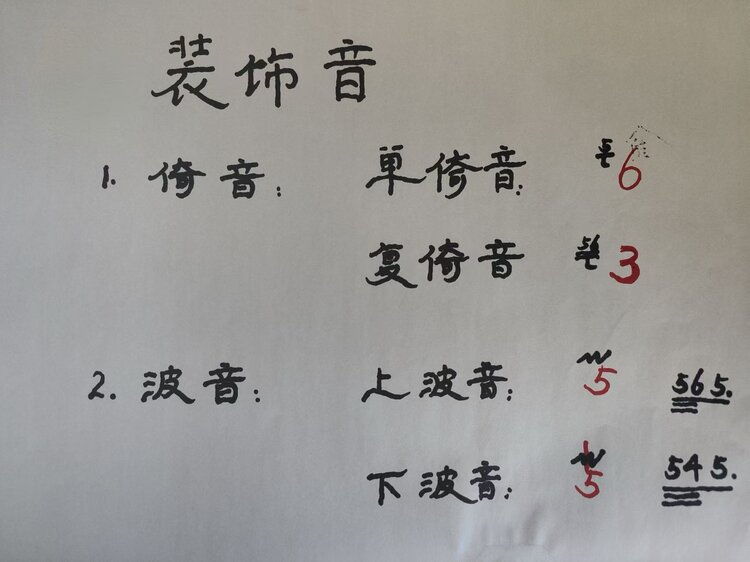 装饰音
1. 倚音: 单倚音: 5 6
复倚音 56 3
2. 波音: 上波音: 5 565.
下波音: 5 545.